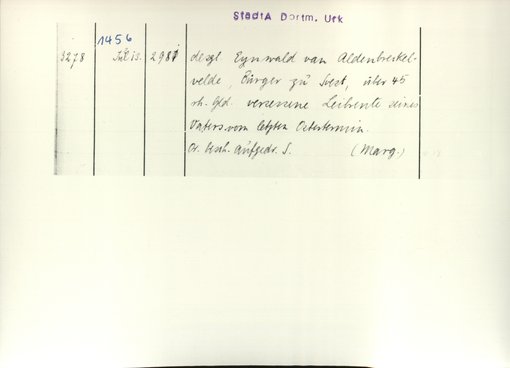 StadtA Dortm. Urk
1456
3278 Juli 15. 2981 desgl Eynwald van Aldenbreckel-
velde, Bürger zu Soest, über 45
rh. Gld. versessene Leibrente seines
Vaters vom letzten Ostertermin.
Or. besch. aufgedr. S. (Marg.)